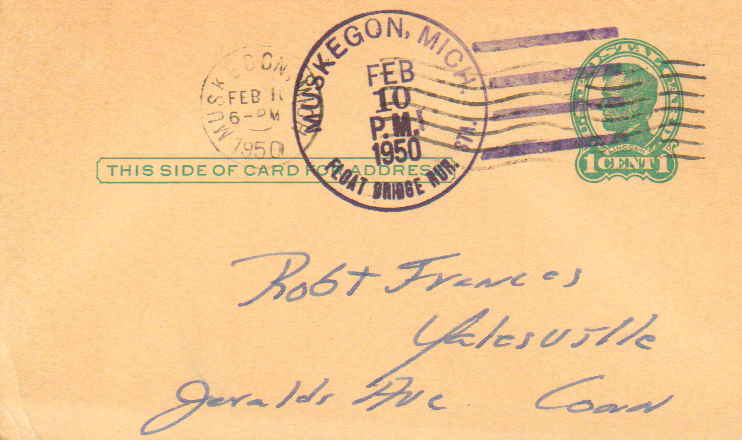 MUSKEGON,
FEB 1
6-PM
1950
MUSKEGON, MICH.
FEB
10
P.M.
1950
FLOAT BRIDGE RUR. STA.
THIS SIDE OF CARD FOR ADDRESS
1 CENT 1
Robt Frances
Yalesville
Geralds Ave Conn